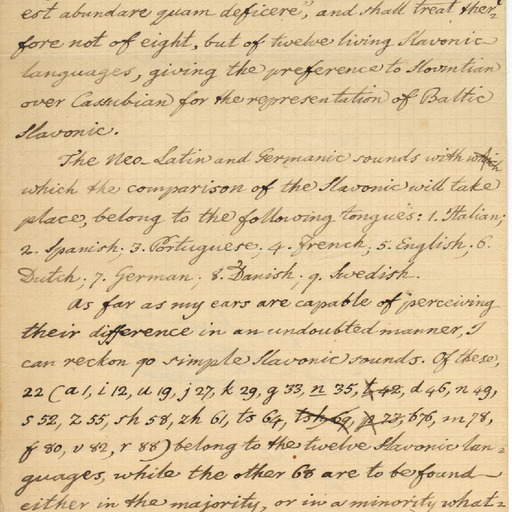 est abundare quam deficere", and shall treat there-
fore not of eight, but of twelve living Slavonic
languages, giving the preference to Slovintian
over Cassubian for the representation of Baltic
Slavonic.
The Neo-Latin and Germanic sounds with which
which the comparison of the Slavonic will take
place, belong to the following tongues: 1. Italian;
2. Spanish; 3. Portuguese; 4. French; 5. English; 6.
Dutch; 7. German; 8. Danish. 9. Swedish.
As far as my ears are capable of perceiving
their difference in an undoubted manner, I
can reckon 90 simple Slavonic sounds. Of these,
22 (a 1, i 12, u 19, j 27, k 29, g 33, n 35, t 42, d 46, n 49,
s 52, z 55, sh 58, zh 61, ts 64, tsh 69, p 73, b 76, m 78,
f 80, v 82, r 88) belong to the twelve Slavonic lan-
guages, while the other 68 are to be found
either in the majority, or in a minority what-